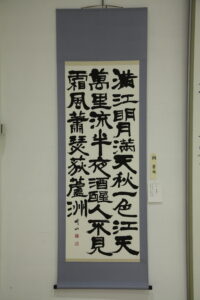 滿江明月滿天秋一色江天
萬里流半夜酒醒人不見
霜風蕭瑟荻蘆洲